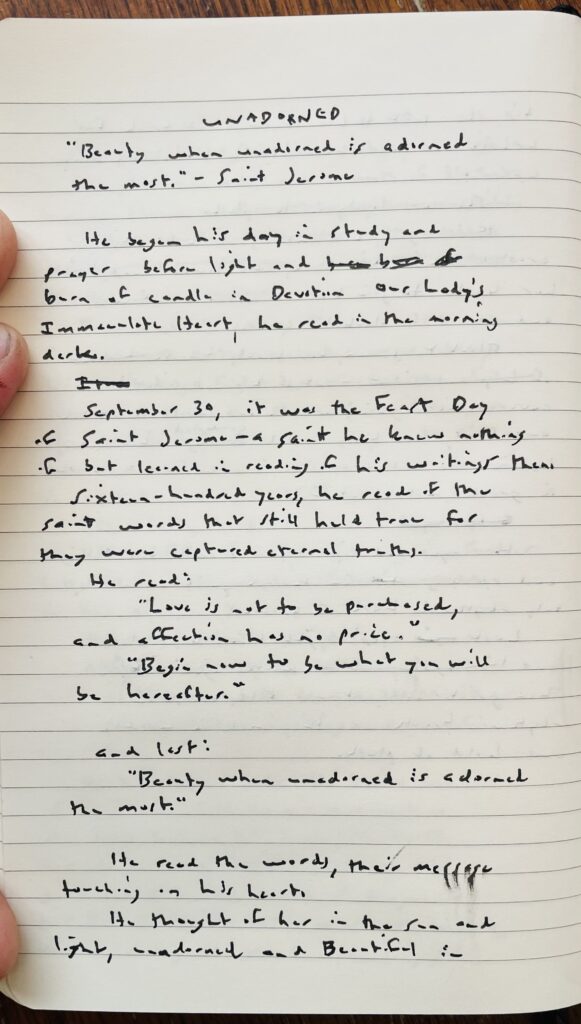 UNADORNED
"Beauty when unadorned is adorned
the most." - Saint Jerome
He began his day in study and
prayer before light and
burn of candle in Devotion Our Lady's
Immaculate Heart, he read in the morning
dark.
September 30, it was the Feast Day
of Saint Jerome - a saint he knew nothing
of but learned in reading of his writings then.
Sixteen-hundred years, he read of the
saint words that still held true for
they were captured eternal truths.
He read:
"Love is not to be purchased,
and affection has no price."
"Begin now to be what you will
be hereafter."
and last:
"Beauty when unadorned is adorned
the most."
He read the words, their message
touching on his heart.
He thought of her in the sun and
light, unadorned and Beautiful in